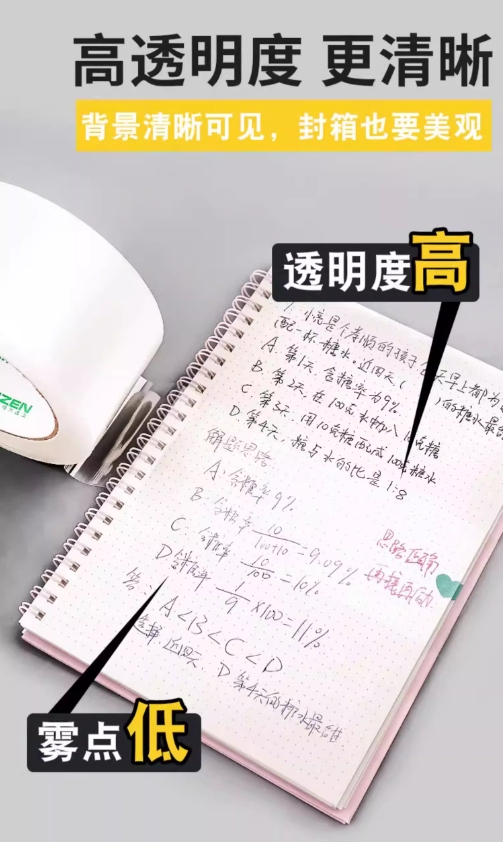 高透明度 更清晰
背景清晰可见，封箱也要美观
透明度高
小亮是个孝顺的孩子
配一杯糖水。近四天(
A. 第1天, 含糖率为9%.
B. 第2天, 在100克水中加入10克糖
C. 第3天. 用10克糖配成100克糖水
D. 第4天. 糖与水的比是1:8
解题思路
A. 含糖率9%
B. 含糖率 10/100+10 = 9.09%
C. 含糖率 10/100 = 10%
D. 含糖率 1/9 ×100 = 11%
思路正确
答:
A<B<C<D
近四天、D 第4天的糖水最甜
雾点低
ZEN